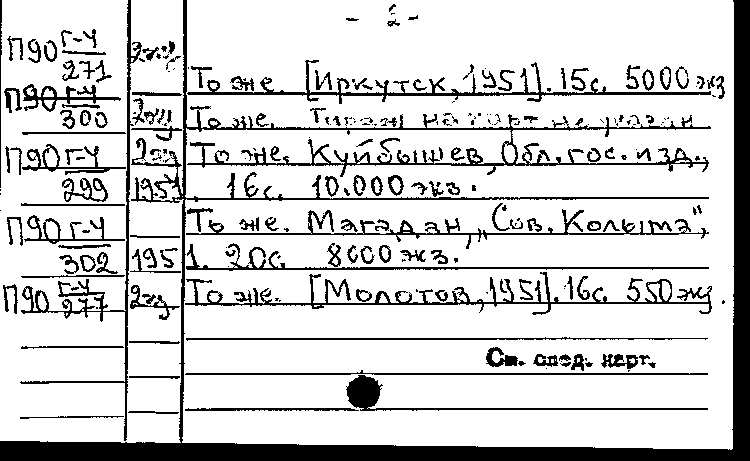 - 2 -
П90 Г-4 2экз
271 То же. [Иркутск, 1951]. 15с. 5000 экз
П90 Г-4
300 2экз То же. Тираж на карт. не указан
П90 Г-4 2экз То же. Куйбышев, Обл. гос. изд.,
299 1951. 16с. 10.000 экз.
П90 Г-4 То же. Магадан, „Сов. Колыма",
302 1951. 20с. 8000 экз.
П90 Г-4 2экз То же. [Молотов, 1951]. 16с. 550 экз.
277
См. след. карт.